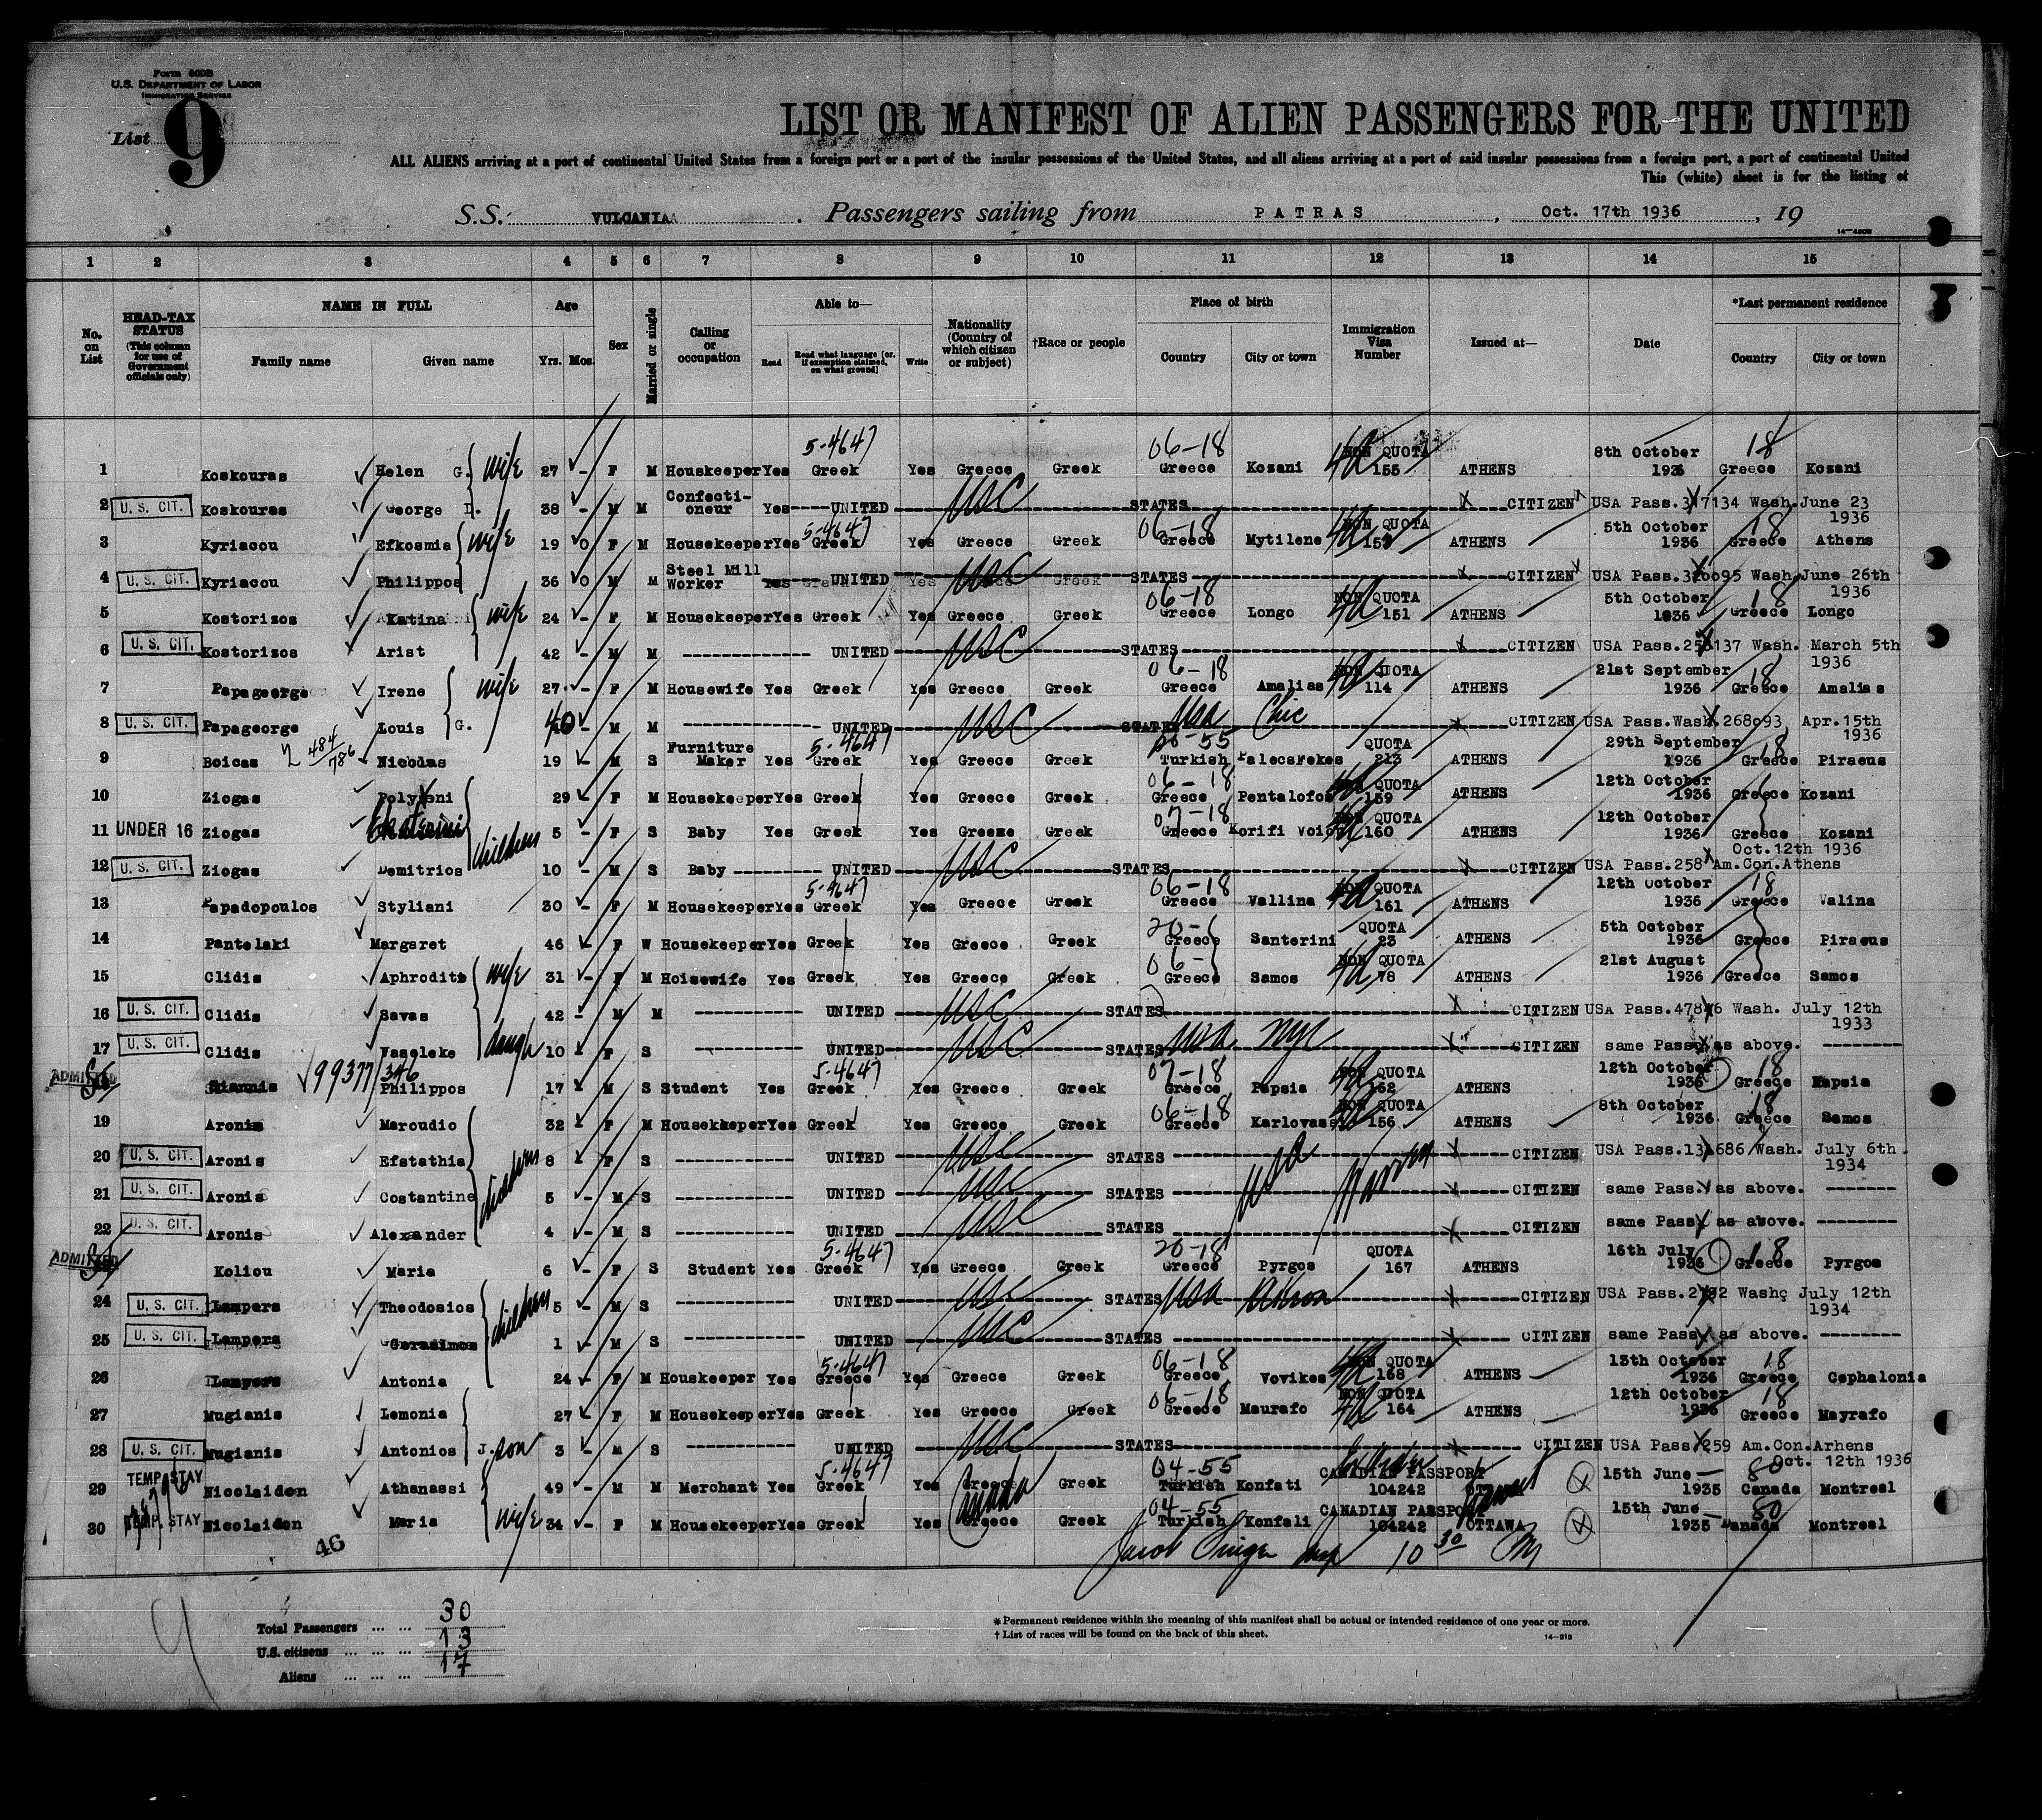 Form 500B
U.S. DEPARTMENT OF LABOR
IMMIGRATION SERVICE
List 9
LIST OR MANIFEST OF ALIEN PASSENGERS FOR THE UNITED
ALL ALIENS arriving at a port of continental United States from a foreign port or a port of the insular possessions of the United States, and all aliens arriving at a port of said insular possessions from a foreign port, a port of continental United
This (white) sheet is for the listing of
S.S. VULCANIA . Passengers sailing from PATRAS , Oct. 17th 1936 , 19
1 2 3 4 5 6 7 8 9 10 11 12 13 14 15
No. on List HEAD-TAX STATUS (This column for use of Government officials only) NAME IN FULL Family name Given name Age Yrs. Mos. Sex Married or single Calling or occupation Able to— Read Read what language [or, if exemption claimed, on what ground] Write Nationality (Country of which citizen or subject) †Race or people Place of birth Country City or town Immigration Visa Number Issued at— Date *Last permanent residence Country City or town
1 Koskouras Helen G. wife 27 - F M Housekeeper Yes Greek 5-4647 Yes Greece Greek 06-18 Greece Kozani NON QUOTA 155 ATHENS 8th October 1936 18 Greece Kozani
2 U. S. CIT. Koskouras George D. 38 - M M Confectioneur Yes UNITED USC STATES CITIZEN USA Pass. Wash. June 23 1936
3 Kyriacou Efkosmia wife 19 0 F M Housekeeper Yes Greek 5-4647 Yes Greece Greek 06-18 Greece Mytilene NON QUOTA ATHENS 5th October 1936 18 Greece Athens
4 U. S. CIT. Kyriacou Philippos 36 0 M M Steel Mill Worker Yes UNITED USC STATES CITIZEN USA Pass. Wash. June 26th 1936
5 Kostorizos Katina wife 24 - F M Housekeeper Yes Greek Yes Greece Greek 06-18 Greece Longo NON QUOTA 151 ATHENS 5th October 1936 18 Greece Longo
6 U. S. CIT. Kostorizos Arist 42 - M M UNITED USC STATES CITIZEN USA Pass. Wash. March 5th 1936
7 Papageorge Irene wife 27 - F M Housewife Yes Greek Yes Greece Greek 06-18 Greece Amalias NON QUOTA 114 ATHENS 21st September 1936 18 Greece Amalias
8 U. S. CIT. Papageorge Louis G. 40 M M UNITED USC STATES usa Chic CITIZEN USA Pass. Wash. 268093 Apr.15th 1936
9 Boicas 2 484/786 Nicolas 19 - M S Furniture Maker Yes Greek 5-4647 Yes Greece Greek Turkish QUOTA 213 ATHENS 29th September 1936 18 Greece Piraeus
10 Ziogas Polyxeni 29 F M Housekeeper Yes Greek Yes Greece Greek 06-18 Greece Pentalofos NON QUOTA 159 ATHENS 12th October 1936 Greece Kozani
11 UNDER 16 Ziogas Ekaterini children 5 - F S Baby Yes Greek Yes Greece Greek 07-18 Greece Korifi NON QUOTA 160 ATHENS 12th October 1936 Greece Kozani
12 U. S. CIT. Ziogas Demitrios 10 - M S Baby UNITED USC STATES CITIZEN USA Pass. 258 Am.Con.Athens Oct.12th 1936
13 Papadopoulos Styliani 30 - F M Housekeeper Yes Greek 5-4647 Yes Greece Greek 06-18 Greece Vallina NON QUOTA 161 ATHENS 12th October 1936 18 Greece Valina
14 Pantelaki Margaret 46 - F W Housekeeper Yes Greek Yes Greece Greek 20- Greece Santerini QUOTA 23 ATHENS 5th October 1936 Greece Piraeus
15 Clidis Aphrodite wife 31 - F M Hoisewife Yes Greek Yes Greece Greek 06- Greece Samos NON QUOTA ATHENS 21st August 1936 Greece Samos
16 U. S. CIT. Clidis Savas 42 - M M UNITED USC STATES CITIZEN USA Pass. Wash. July 12th 1933
17 U. S. CIT. Clidis Vaseleke daugh 10 - F S UNITED USC STATES usa nyc CITIZEN same Pass. as above.
ADMITTED Giannis 99377/346 Philippos 17 - M S Student Yes Greek 5-4647 Yes Greece Greek 07-18 Greece Papsia NON QUOTA 162 ATHENS 12th October 1936 18 Greece
19 Aronis Maroudio 32 - F M Housekeeper Yes Greek Yes Greece Greek 06-18 Greece Karlovassi NON QUOTA 156 ATHENS 8th October 1936 18 Greece Samos
20 U. S. CIT. Aronis Efstathia children 8 - F S UNITED USC STATES usa Warren CITIZEN USA Pass. Wash. July 6th 1934
21 U. S. CIT. Aronis Costantine 5 - M S UNITED USC STATES CITIZEN same Pass. as above.
22 U. S. CIT. Aronis Alexander 4 - M S UNITED USC STATES CITIZEN same Pass. as above.
ADMITTED Koliou Maria 6 - F S Student Yes Greek 5-4647 Yes Greece Greek 20-18 Greece Pyrgos QUOTA 167 ATHENS 16th July 1936 18 Greece Pyrgos
24 U. S. CIT. Lampers Theodosios children 5 - M S UNITED USC STATES usa Akron CITIZEN USA Pass. July 12th 1934
25 U. S. CIT. Lampers Gerasimos 1 - M S UNITED USC STATES CITIZEN same Pass. as above.
26 Lampers Antonia 24 - F M Houskeeper Yes Greece 5-4647 Yes Greece Greek 06-18 Greece Vovikes NON QUOTA 168 ATHENS 13th October 1936 18 Greece Cephalonia
27 Mugianis Lemonia 27 - F M Housekeeper Yes Greek Yes Greece Greek 06-18 Greece Maurafo NON QUOTA 164 ATHENS 12th October 1936 18 Greece Mayrafo
28 U. S. CIT. Mugianis Antonios J. son 3 - M S UNITED USC STATES CITIZEN USA Pass 259 Am.Con.Arhens Oct. 12th 1936
29 TEMP. STAY Nicolaidon Athanassi 49 - M M Merchant Yes Greek 5-4647 Yes Greece Canada Greek 04-55 Turkish Konfati CANADIAN PASSPORT 104242 15th June 1935 80 Canada Montreal
30 TEMP. STAY Nicolaidon Maria wife 34 - F M Housekeeper Yes Greek Yes Greece Greek 04-55 Turkish Konfali CANADIAN PASSPORT 104242 OTTAWA 15th June 1935 80 Canada Montreal
46
Jacob Singer Insp 10 30
Total Passengers ... ... 30
U.S. citizens ... ... ... 13
Aliens ... ... ... 17
* Permanent residence within the meaning of this manifest shall be actual or intended residence of one year or more.
† List of races will be found on the back of this sheet.